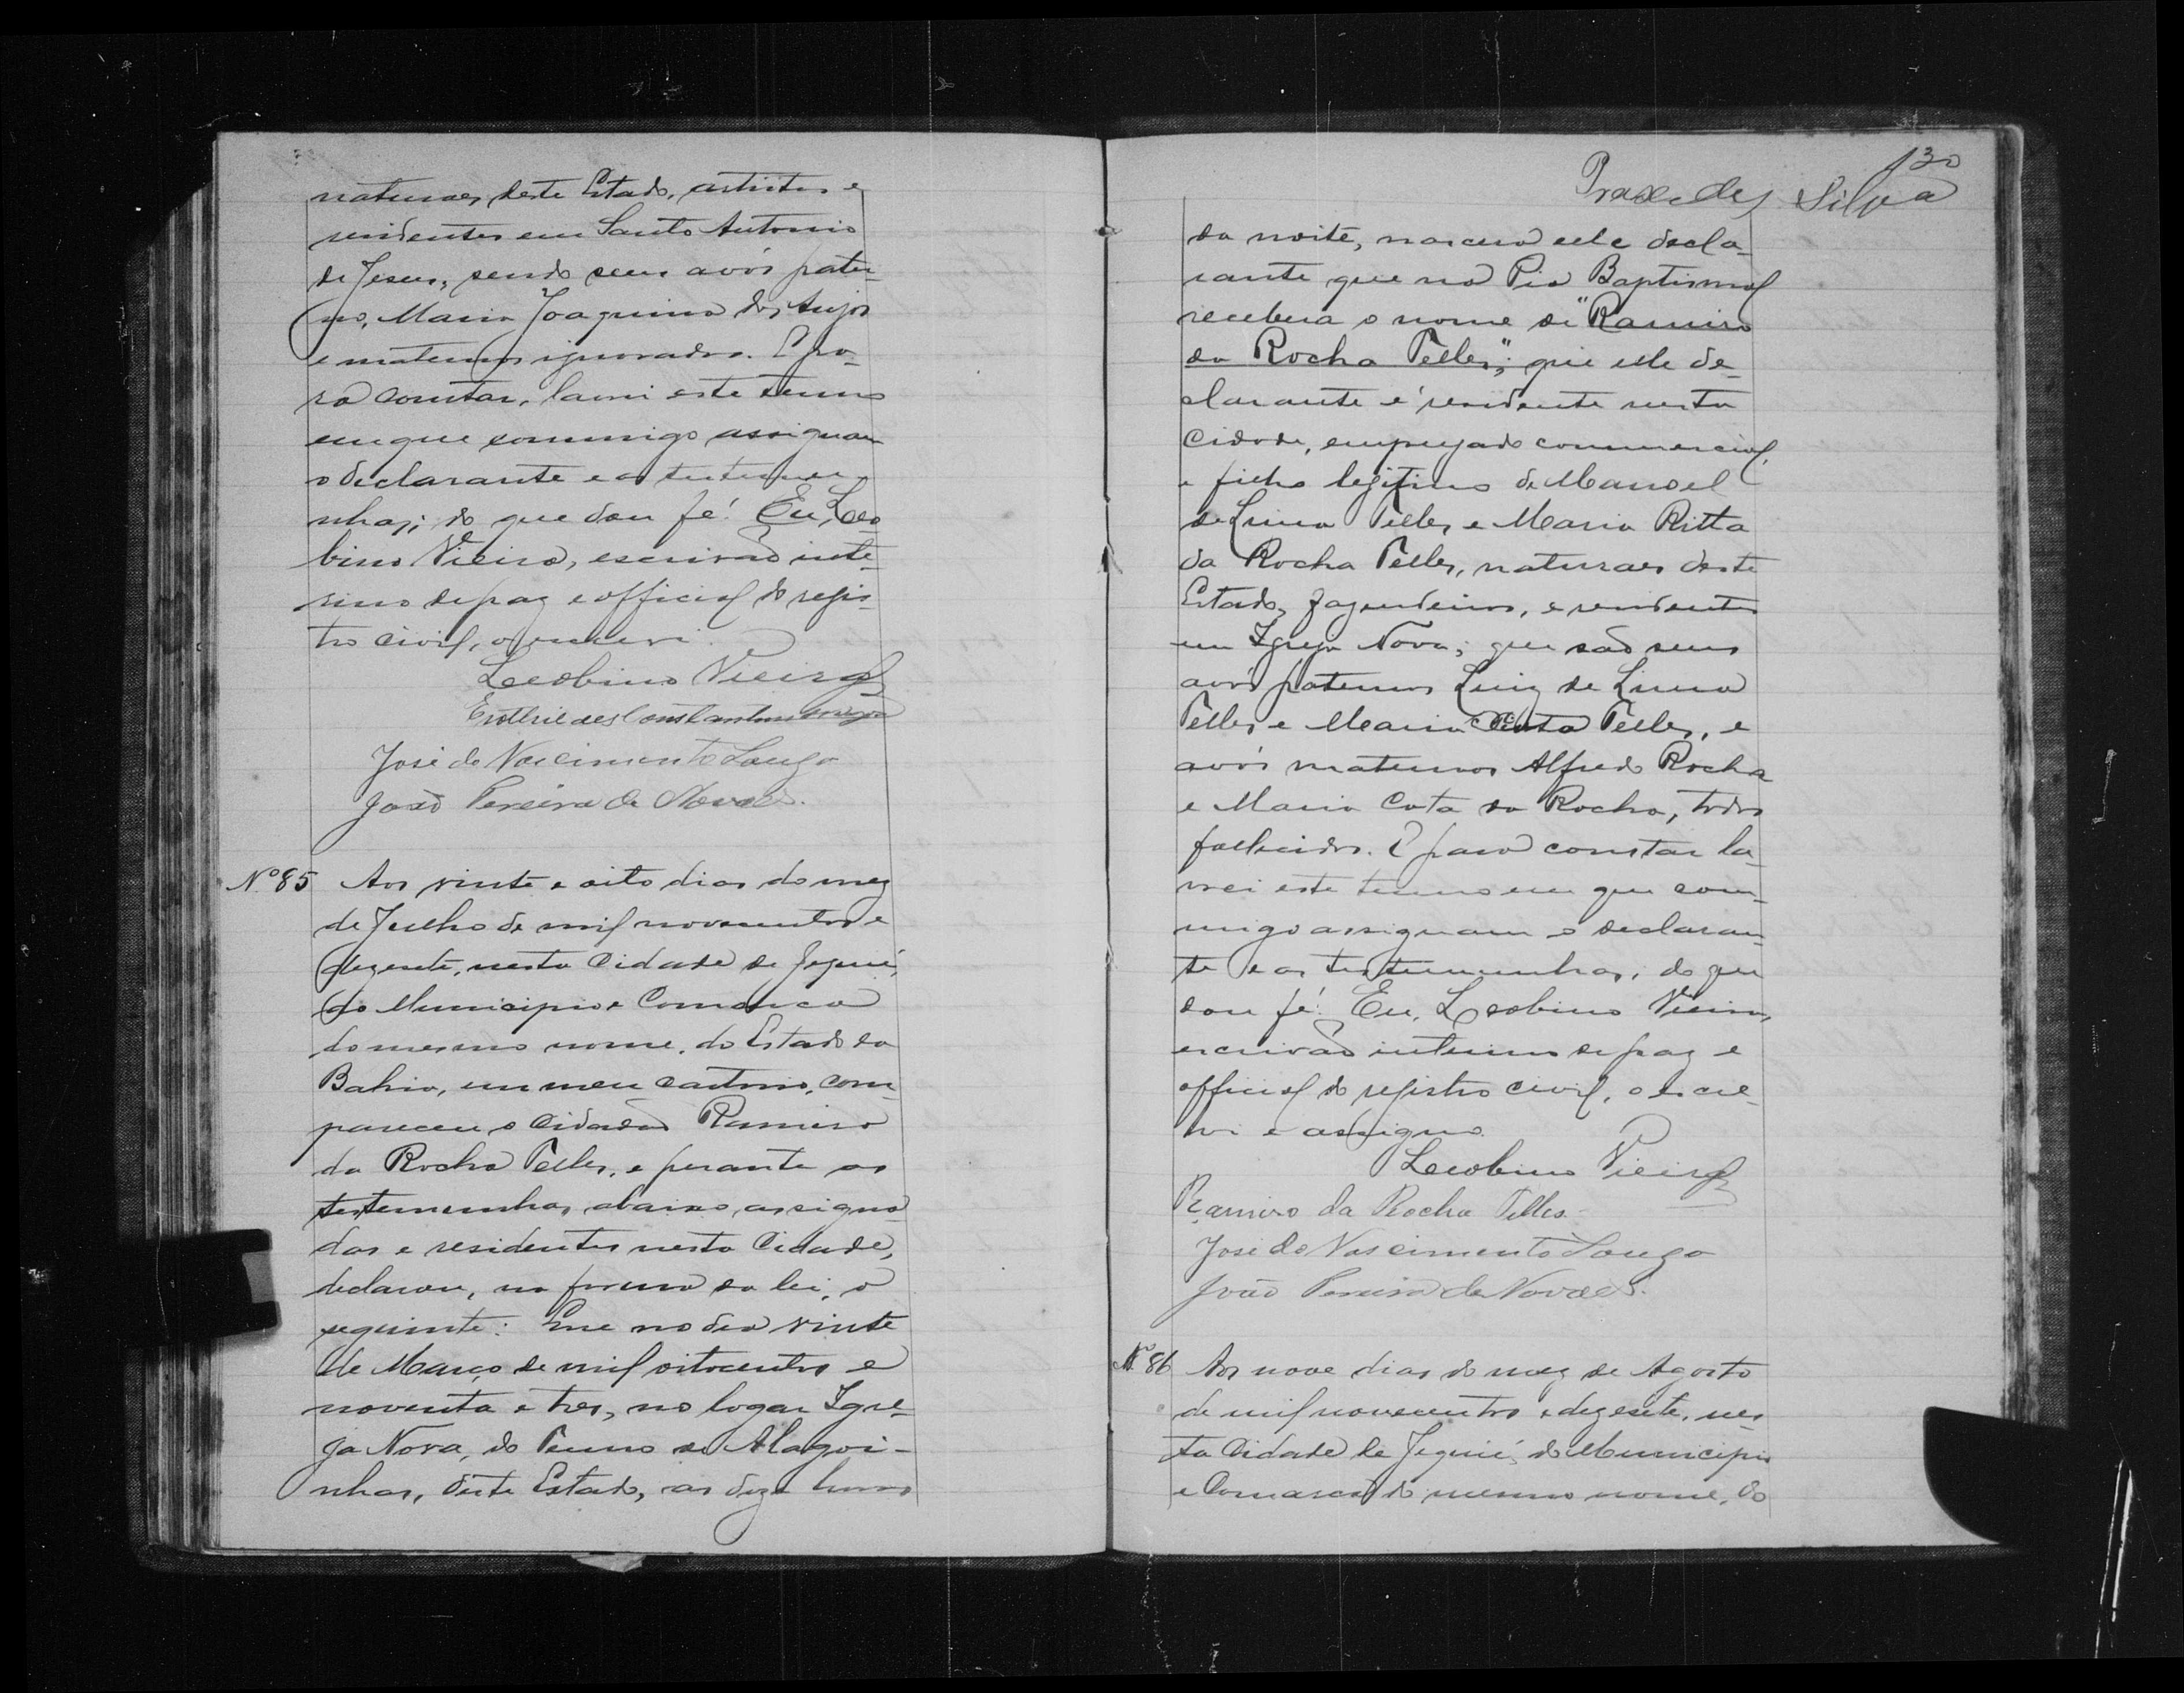 naturaes deste Estado, artistas e
residentes em Santo Antonio
de Jesus, sendo seus avós pater-
no, Maria Joaquina dos Anjos
e maternos ignorados. E pa-
ra constar, lavrei este termo
em que commigo assignam
o declarante e as testemu-
nhas; do que dou fé. Eu, Leo
bino Vieira, escrivão inte-
rino de paz e official do regis-
tro civil, o escrevi.
Leobino Vieira
Constantino
José do Nascimento Souza
João Pereira de Novaes.
Nº 85 Aos vinte e oito dias do mez
de Julho de mil novecentos e
dezesete, nesta Cidade de Jequié,
do Municipio e Comarca
do mesmo nome, do Estado da
Bahia, em meu cartorio, com-
pareceu o cidadão Ramiro
da Rocha Telles, e perante as
testemunhas abaixo assigna-
das e residentes nesta Cidade,
declarou, na forma da lei, o
seguinte: Que no dia vinte
de Março de mil oitocentos e
noventa e tres, no logar Igre-
ja Nova, do Termo de Alagoi-
nhas, deste Estado, as dez horas
130
Praxedes Silva
da noite, nasceu elle decla-
rante que na Pia Baptismal
recebera o nome de "Ramiro
da Rocha Telles"; que elle de-
clarante é residente nesta
Cidade, empregado commercial,
e filho legitimo de Manoel
de Lima Telles e Maria Ritta
da Rocha Telles, naturaes deste
Estado, fazendeiros, e residentes
em Igreja Nova; que são seus
avós paternos Luiz de Lima
Telles e Maria Telles, e
avós maternos Alfredo Rocha
e Maria Cata da Rocha, todos
fallecidos. E para constar la-
vrei este termo em que com-
migo assignam o declaran-
te e as testemunhas, do que
dou fé. Eu, Leobino Vieira,
escrivão interino de paz e
official do registro civil, o escre-
vi e assigno.
Leobino Vieira
Ramiro da Rocha Telles.
José do Nascimento Souza
João Pereira de Novaes.
Nº 86 Aos nove dias do mez de Agosto
de mil novecentos e dezesete, nes-
ta Cidade de Jequié, do Municipio
e Comarca do mesmo nome, do